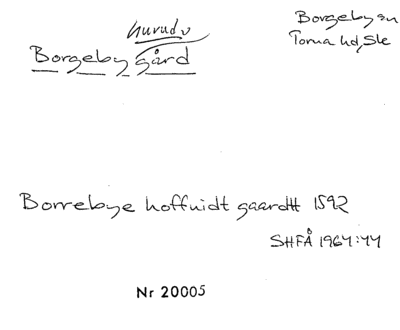 huvud
Borgeby gård
Borgeby sn
Torna hd, Sk
Borrebye hoffuidt gaardtt 1592
SHFÅ 1964:44
Nr 20005